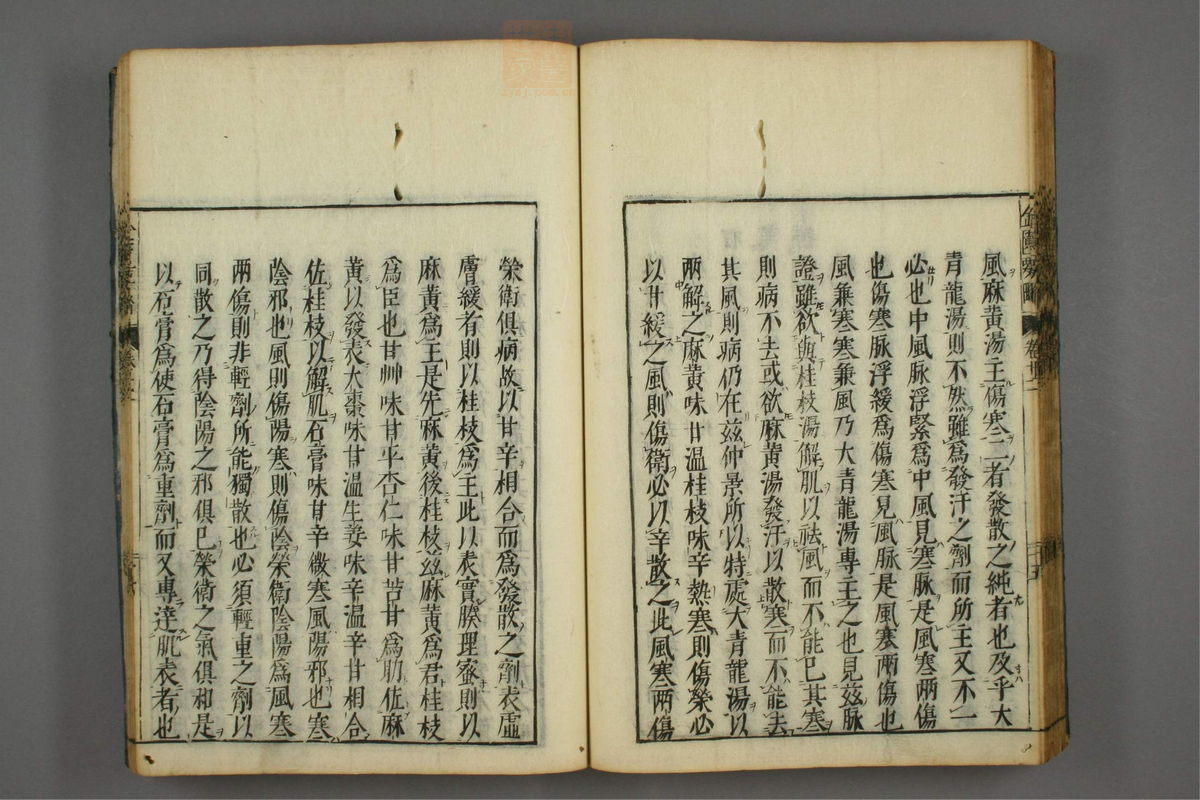 風麻黃湯主傷寒二者發散之純者也及乎大
青龍湯則不然雖爲發汗之劑而所主又不一
必也中風脉浮緊爲中風見寒脉是風寒兩傷
也傷寒脉浮緩爲傷寒見風脉是風寒兩傷也
風兼寒寒兼風乃大青龍湯專主之也見玆脉
證雖欲與桂枝湯解肌以祛風而不能已其寒
則病不去或欲麻黃湯發汗以散寒而不能去
其風則病仍在玆仲景所以特處大青龍湯以
兩解之麻黃味甘温桂枝味辛熱寒則傷榮必
以甘緩之風則傷衛必以辛散之此風寒兩傷
榮衛俱病故以甘辛相合而爲發散之劑表虛
膚緩者則以桂枝爲主此以表實腠理密則以
麻黃爲主是先麻黃後桂枝玆麻黃爲君桂枝
爲臣也甘艸味甘平杏仁味甘苦甘爲助佐麻
黃以發表大棗味甘溫生姜味辛温辛甘相合
佐桂枝以解肌石膏味甘辛微寒風陽邪也寒
陰邪也風則傷陽寒則傷陰榮衛陰陽爲風寒
兩傷則非輕劑所能獨散也必須輕重之劑以
同散之乃得陰陽之邪俱已榮衛之氣俱和是
以石膏爲使石膏爲重劑而又專達肌表者也